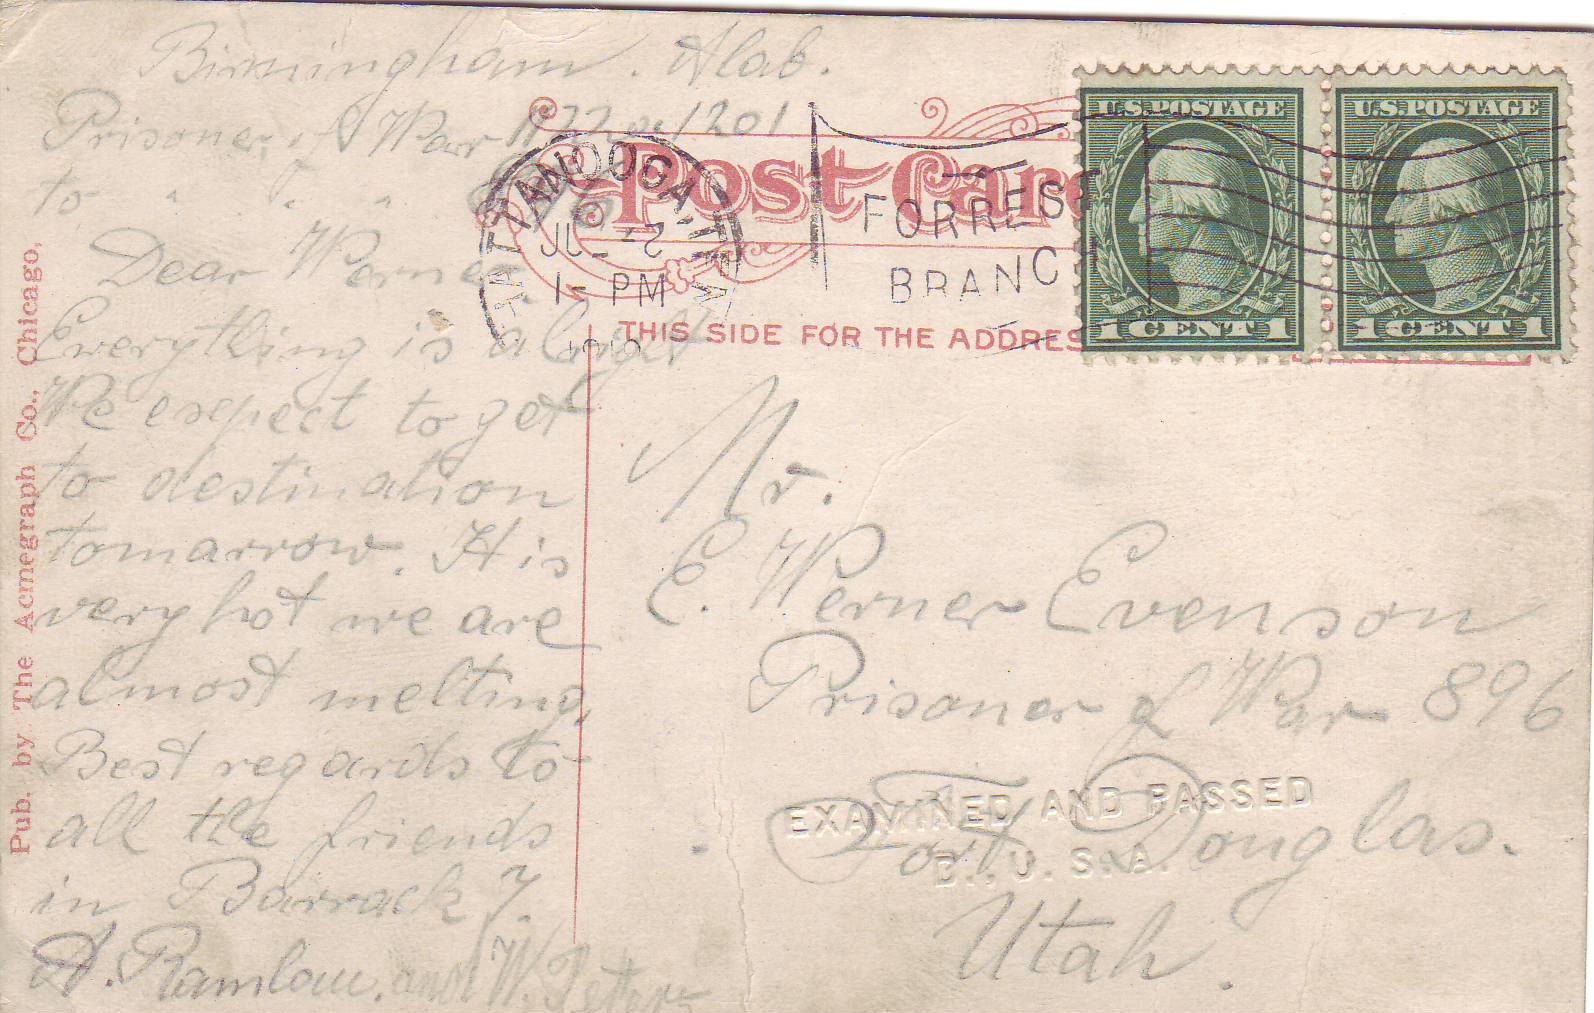 Birmingham. Alab.
Prisoner of War 1201
to " " "
Dear Werner
Everything is alright
We expect to get
to destination
tomarrow. It is
very hot we are
almost melting.
Best regards to
all the friends
in Barrack 7.
A. Ramlau. and W. Peters
Pub. by The Acmegraph Co., Chicago,
Post Card
THIS SIDE FOR THE ADDRES
CHATTANOOGA, TENN
JUL 2
1- PM
FORREST
BRANCH
U.S. POSTAGE
1 CENT 1
U.S. POSTAGE
1 CENT 1
Mr.
E. Werner Evenson
Prisoner of War 896
Fort Douglas.
Utah.
EXAMINED AND PASSED
U. S. A.